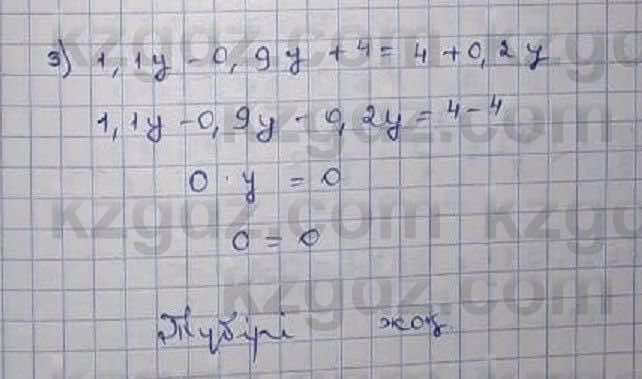 3) 1,1y - 0,9y + 4 = 4 + 0,2y
1,1y - 0,9y - 0,2y = 4 - 4
0 · y = 0
0 = 0
Түбірі жоқ
kzgdz.com
kzgdz.com
kzgdz.com
kzgdz.com